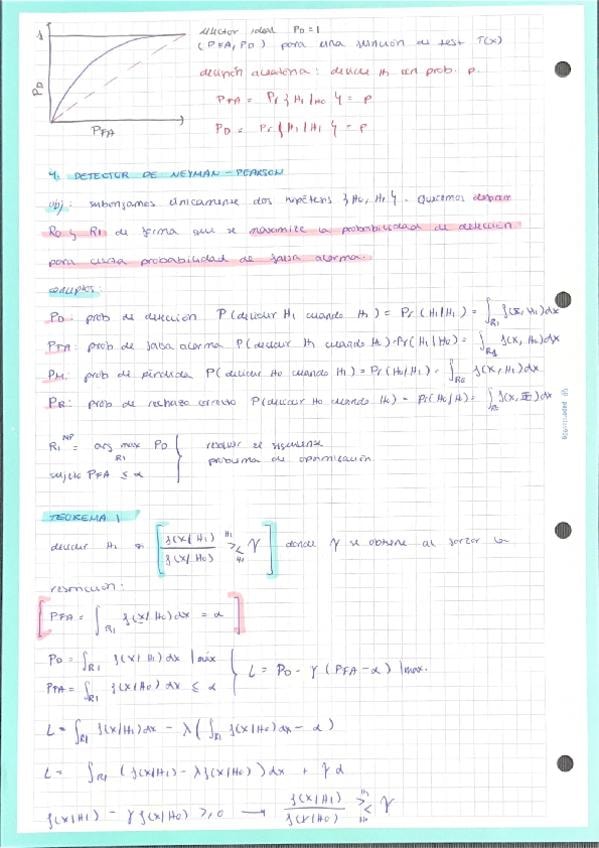 detector ideal PD = 1
1
(PFA, PD) para una función de test T(x)
decisión aleatoria: decide H1 con prob. p.
PD
PFA = Pr { H1 | H0 } = p
PFA
PD = Pr { H1 | H1 } = p
4. DETECTOR DE NEYMAN - PEARSON
obj: supongamos únicamente dos hipótesis { H0, H1 }. Queremos
R0 y R1 de forma que se maximize la probabilidad de detección
para cierta probabilidad de falsa alarma.
PD: prob de detección P(decidir H1 cuando H1) = Pr(H1|H1) = ∫R1 f(x, H1)dx
PFA: prob de falsa alarma P(decidir H1 cuando H0) = Pr(H1|H0) = ∫R1 f(x, H0)dx
PM: prob de pérdida P(decidir H0 cuando H1) = Pr(H0|H1) = ∫R0 f(x, H1)dx
PR: prob de rechazo correcto P(decidir H0 cuando H0) = Pr(H0|H0) =
R1 NP = arg max PD resolver el siguiente
R1 problema de optimización
sujeto PFA ≤ α
TEOREMA 1
decidir H1 f(x/H1) / f(x/H0) H1 ≷ H0 γ donde γ se obtiene al forzar la
restricción:
PFA = ∫R1 f(x/H0)dx = α
PD = ∫R1 f(x/H1)dx | máx
L = PD - γ (PFA - α) | max.
PFA = ∫R1 f(x/H0)dx ≤ α
L = ∫R1 f(x/H1)dx - λ ( ∫R1 f(x/H0)dx - α )
L = ∫R1 ( f(x/H1) - λ f(x/H0) ) dx + γ α
f(x/H1) - γ f(x/H0) ≥ 0 → f(x/H1) / f(x/H0) H1 ≷ H0 γ